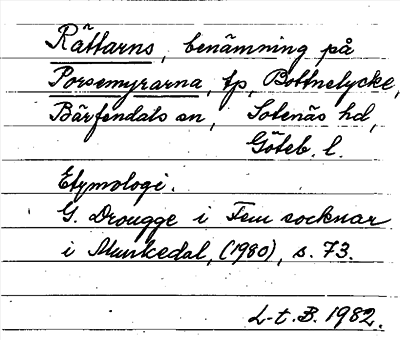 Rättarns, benämning på
Porsemyrarna, tp, Bottnelycke,
Bärfendals sn, Sotenäs hd,
Göteb. l.
Etymologi.
G. Drougge i Fem socknar
i Munkedal, (1980), s. 73.
L-t. B. 1982.